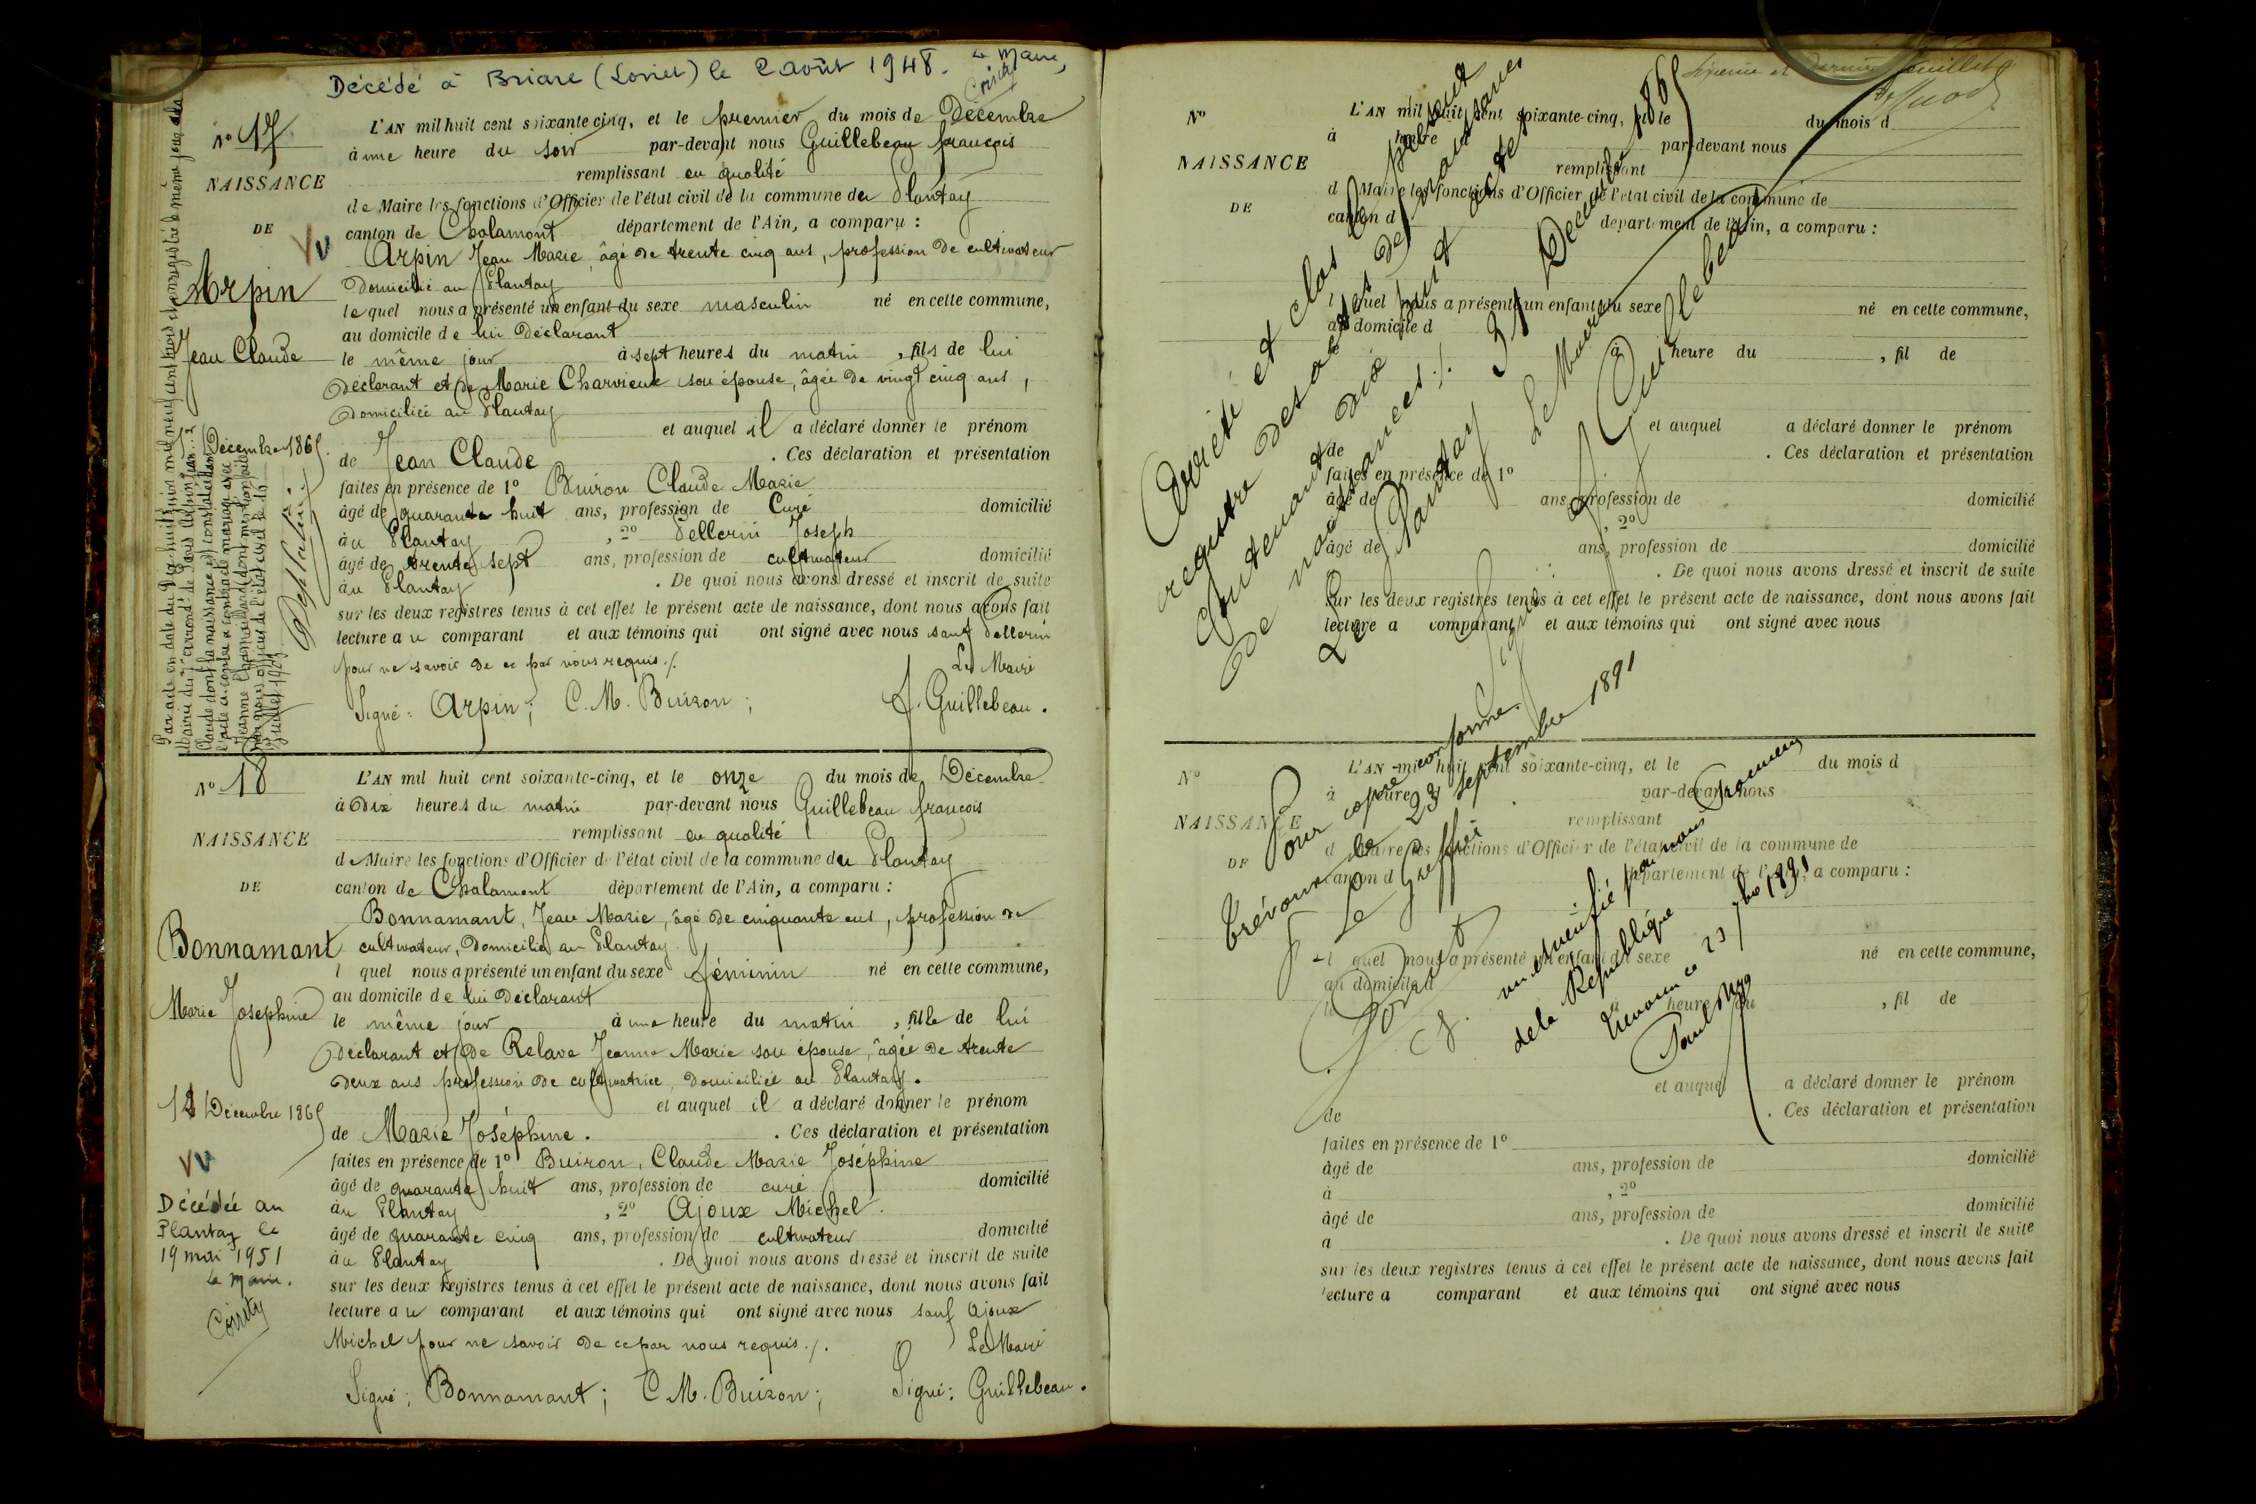 Décédé à Briare (Loiret) le 2 Août 1948. Le Maire,
Coirety
N° 17
NAISSANCE
DE
Arpin
Jean Claude
Décembre 1865.
L'AN mil huit cent soixante cinq, et le premier du mois de Décembre
à une heure du soir par-devant nous Guillebeau françois
remplissant en qualité
de Maire les fonctions d'Officier de l'état civil de la commune du Plantay
canton de Chalamont département de l'Ain, a comparu :
Arpin Jean Marie, âgé de trente cinq ans, profession de cultivateur
Domicilié au Plantay
lequel nous a présenté un enfant du sexe masculin né en cette commune,
au domicile de lui Déclarant
le même jour à sept heures du matin, fils de lui
Déclarant et de Marie Charvieux son épouse, âgée de vingt cinq ans,
Domiciliée au Plantay
et auquel il a déclaré donner le prénom
de Jean Claude . Ces déclaration et présentation
faites en présence de 1° Buiron Claude Marie
âgé de quarante huit ans, profession de Curé domicilié
au Plantay , 2° Pellerin Joseph
âgé de trente sept ans, profession de cultivateur domicilié
au Plantay . De quoi nous avons dressé et inscrit de suite
sur les deux registres tenus à cet effet le présent acte de naissance, dont nous avons fait
lecture au comparant et aux témoins qui ont signé avec nous sauf Pellerin
pour ne savoir de ce par nous requis ./.
Le Maire
Signé : Arpin ; C. M. Buiron ; f. Guillebeau .
N° 18
NAISSANCE
DE
Bonnamant
Marie Josephine
11 Décembre 1865
Décédée au
Plantay le
19 mai 1951
Le Maire.
Coirety
L'AN mil huit cent soixante-cinq, et le onze du mois de Décembre
à Dix heures du matin par-devant nous Guillebeau françois
remplissant en qualité
de Maire les fonctions d'Officier de l'état civil de la commune du Plantay
canton de Chalamont département de l'Ain, a comparu :
Bonnamant, Jean Marie, âgé de cinquante ans, profession de
cultivateur, Domicilié au Plantay
l quel nous a présenté un enfant du sexe féminin né en cette commune,
au domicile de lui Déclarant
le même jour à une heure du matin , fille de lui
Déclarant et de Relave Jeanne Marie son épouse, âgée de trente
Deux ans profession de cultivatrice, Domiciliée au Plantay.
et auquel il a déclaré donner le prénom
de Marie Joséphine . . Ces déclaration et présentation
faites en présence de 1° Buiron, Claude Marie Joséphine
âgé de quarante huit ans, profession de curé domicilié
au Plantay , 2° Ajoux Michel.
âgé de quarante cinq ans, profession de cultivateur domicilié
au Plantay . De quoi nous avons dressé et inscrit de suite
sur les deux registres tenus à cet effet le présent acte de naissance, dont nous avons fait
lecture au comparant et aux témoins qui ont signé avec nous sauf Ajoux
Michel pour ne savoir de ce par nous requis ./.
Le Maire
Signé : Bonnamant ; C. M. Buiron ; Signé : Guillebeau .
Sixième et dernier feuillet
N°
NAISSANCE
DE
L'AN mil huit cent soixante-cinq, et le du mois d
à heure par-devant nous
remplissant
d Maire les fonctions d'Officier de l'état civil de la commune de
canton d département de l'Ain, a comparu :
l quel nous a présenté un enfant du sexe né en cette commune,
au domicile d
à heure du , fil de
et auquel a déclaré donner le prénom
de . Ces déclaration et présentation
faites en présence de 1°
âgé de ans, profession de domicilié
, 2°
âgé de ans, profession de domicilié
. De quoi nous avons dressé et inscrit de suite
sur les deux registres tenus à cet effet le présent acte de naissance, dont nous avons fait
lecture a comparant et aux témoins qui ont signé avec nous
Arrêté et clos le présent
registre des actes de naissances
Contenant dix huit actes
de naissances ./.
Le Plantay 31 Décembre 1865
Le Maire
Signé : f. Guillebeau
N°
NAISSANCE
DE
L'AN mil huit cent soixante-cinq, et le du mois d
à heure par-devant nous
remplissant
d Maire les fonctions d'Officier de l'état civil de la commune de
canton d département de l'Ain, a comparu :
l quel nous a présenté un enfant du sexe né en cette commune,
au domicile d
à heure du , fil de
et auquel a déclaré donner le prénom
de . Ces déclaration et présentation
faites en présence de 1°
âgé de ans, profession de domicilié
à , 2°
âgé de ans, profession de domicilié
a . De quoi nous avons dressé et inscrit de suite
sur les deux registres tenus à cet effet le présent acte de naissance, dont nous avons fait
lecture a comparant et aux témoins qui ont signé avec nous
Pour copie conforme.
Trévoux le 23 septembre 1891
Le Greffier
vu et vérifié par nous Procureur
de la République
Trévoux ce 23 7bre 1891